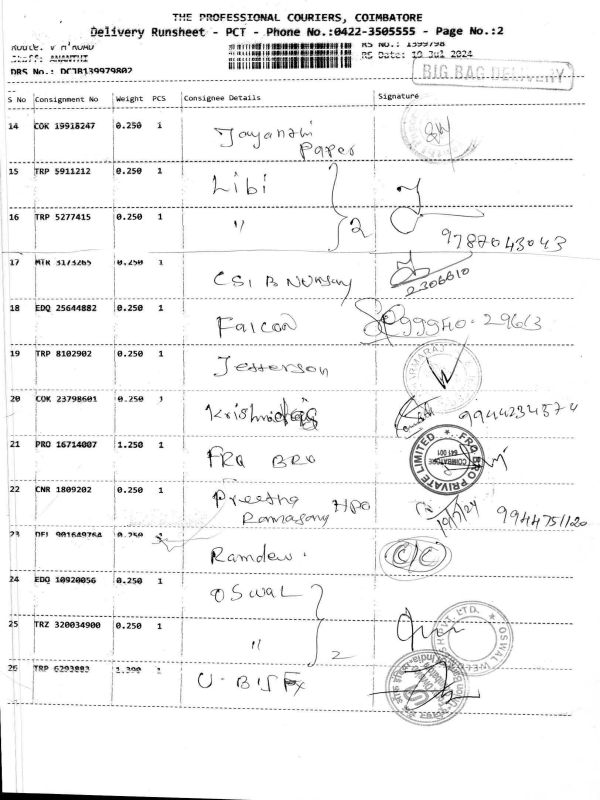 THE PROFESSIONAL COURIERS, COIMBATORE
Delivery Runsheet - PCT - Phone No.:0422-3505555 - Page No.:2
Route: V H ROAD
RS No.: 1399798
Staff: ANANTHI
RS Date: 10 Jul 2024
DRS No.: DCJB139979802
BIG BAG DELIVERY
S No Consignment No Weight PCS Consignee Details Signature
14 COK 19918247 0.250 1 Jayanthi
Paper
15 TRP 5911212 0.250 1 Libi
16 TRP 5277415 0.250 1 " 2
9787043043
17 MTK 3173265 0.250 1 CSI B Nursary 2306610
18 EDQ 25644882 0.250 1 Falcon 99940.29613
19 TRP 8102902 0.250 1 Jefferson
20 COK 23798601 0.250 1 9944234574
21 PRO 16714007 1.250 1 FRQ BRO
FRQ BRO PRIVATE LIMITED
COIMBATORE
641 001
22 CNR 1809202 0.250 1 Preetha HPO
Ramasamy 19/7/24 9944751120
23 DEL 901649764 0.250 Ramdew. C/C
24 EDQ 10920056 0.250 1 OSWAL
25 TRZ 320034900 0.250 1 " 2
26 TRP 6293883 1.390 1 U-BIS Fx